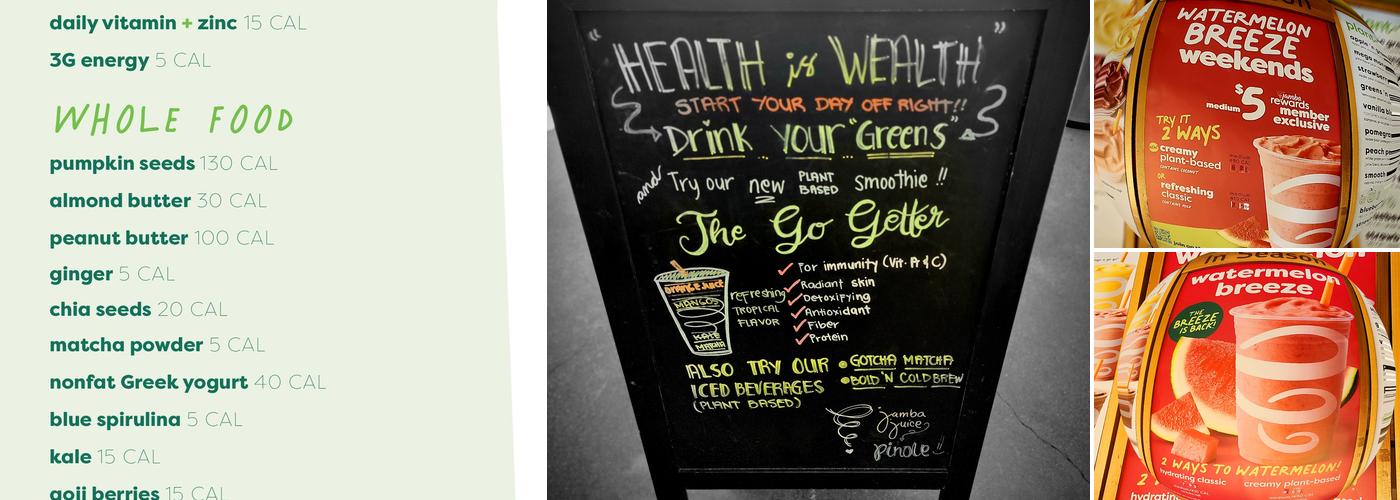 daily vitamin + zinc 15 CAL
3G energy 5 CAL
WHOLE FOOD
pumpkin seeds 130 CAL
almond butter 30 CAL
peanut butter 100 CAL
ginger 5 CAL
chia seeds 20 CAL
matcha powder 5 CAL
nonfat Greek yogurt 40 CAL
blue spirulina 5 CAL
kale 15 CAL
goji berries 15 CAL
"HEALTH is WEALTH"
START YOUR DAY OFF RIGHT!!
Drink your "Greens"
and Try our new PLANT BASED smoothie!!
The Go Getter
ORANGE JUICE
MANGOS
KALE
MATCHA
refreshing
TROPICAL
FLAVOR
For immunity (Vit. A & C)
Radiant skin
Detoxifying
Antioxidant
Fiber
Protein
ALSO TRY OUR
ICED BEVERAGES
(PLANT BASED)
• GOTCHA MATCHA
• BOLD 'N COLD BREW
jamba
juice
pinole!!
WATERMELON
BREEZE
weekends
medium $5 jamba
rewards
member
exclusive
TRY IT
2 WAYS
creamy
plant-based
CONTAINS COCONUT
OR
refreshing
classic
CONTAINS MILK
In Season
watermelon
breeze
THE
BREEZE
IS BACK!
2 WAYS TO WATERMELON!
hydrating classic
creamy plant-based